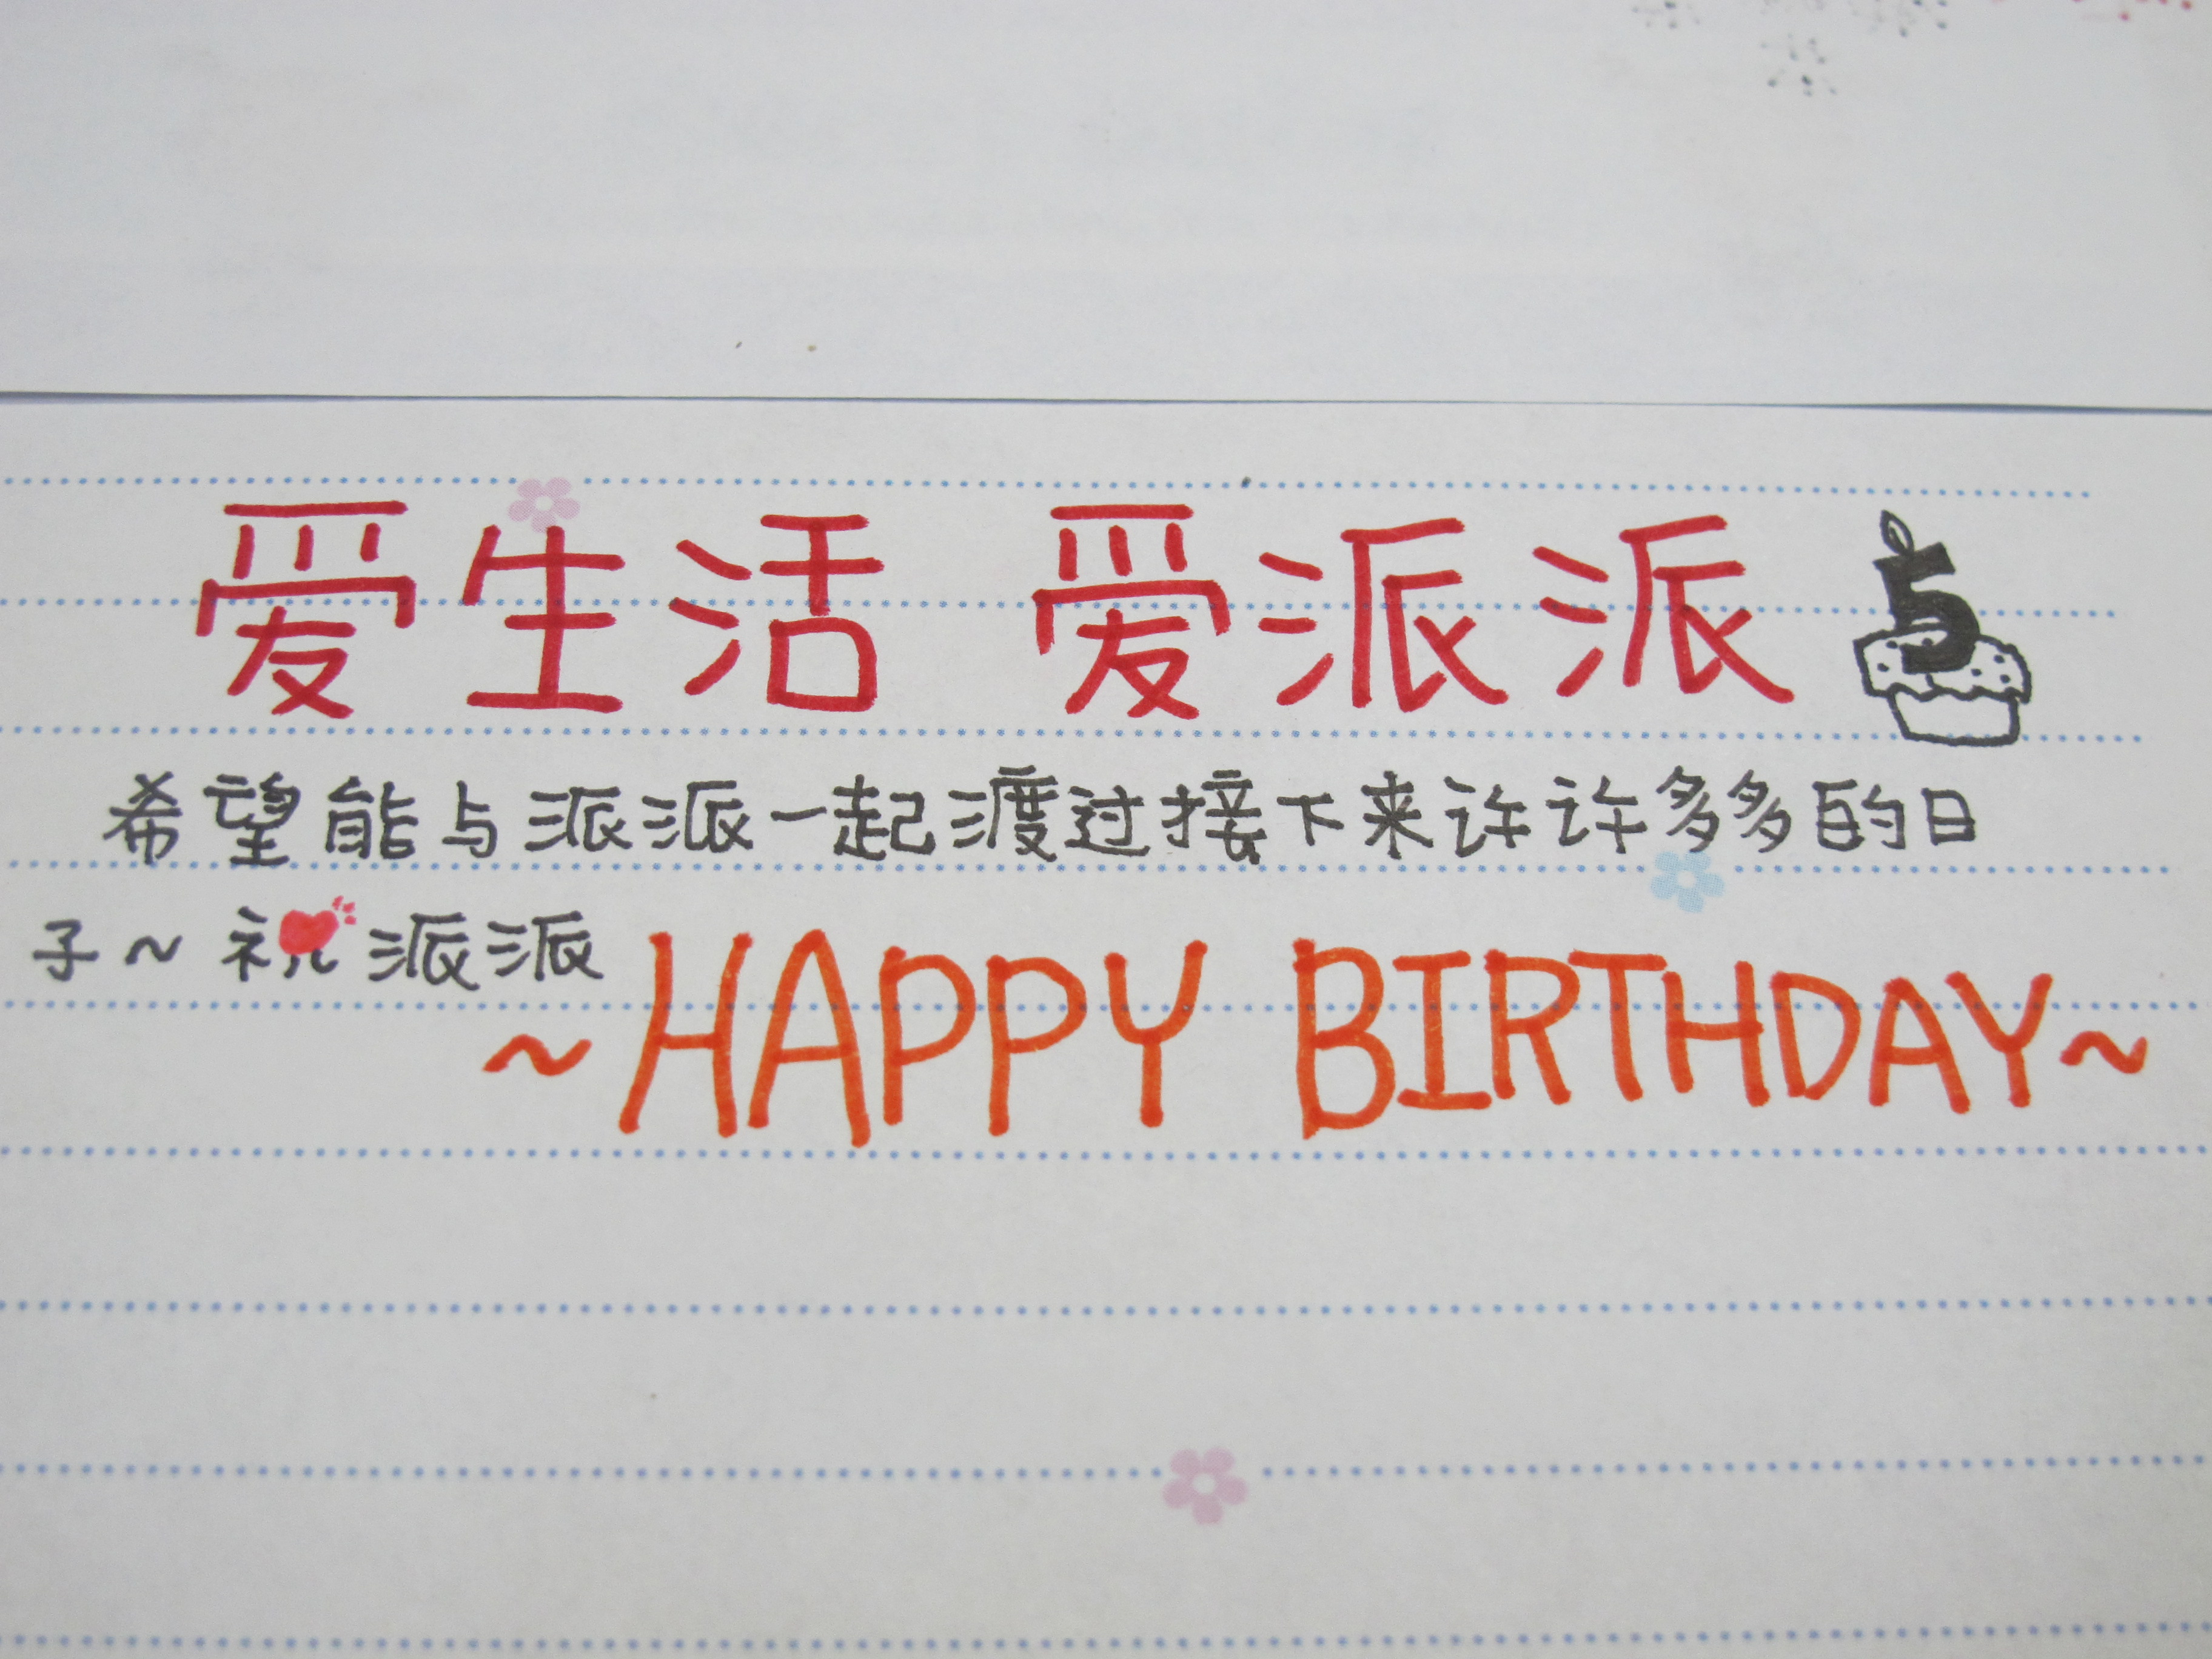 爱生活 爱派派 5
希望能与派派一起渡过接下来许许多多的日
子~ 祝派派
~HAPPY BIRTHDAY~